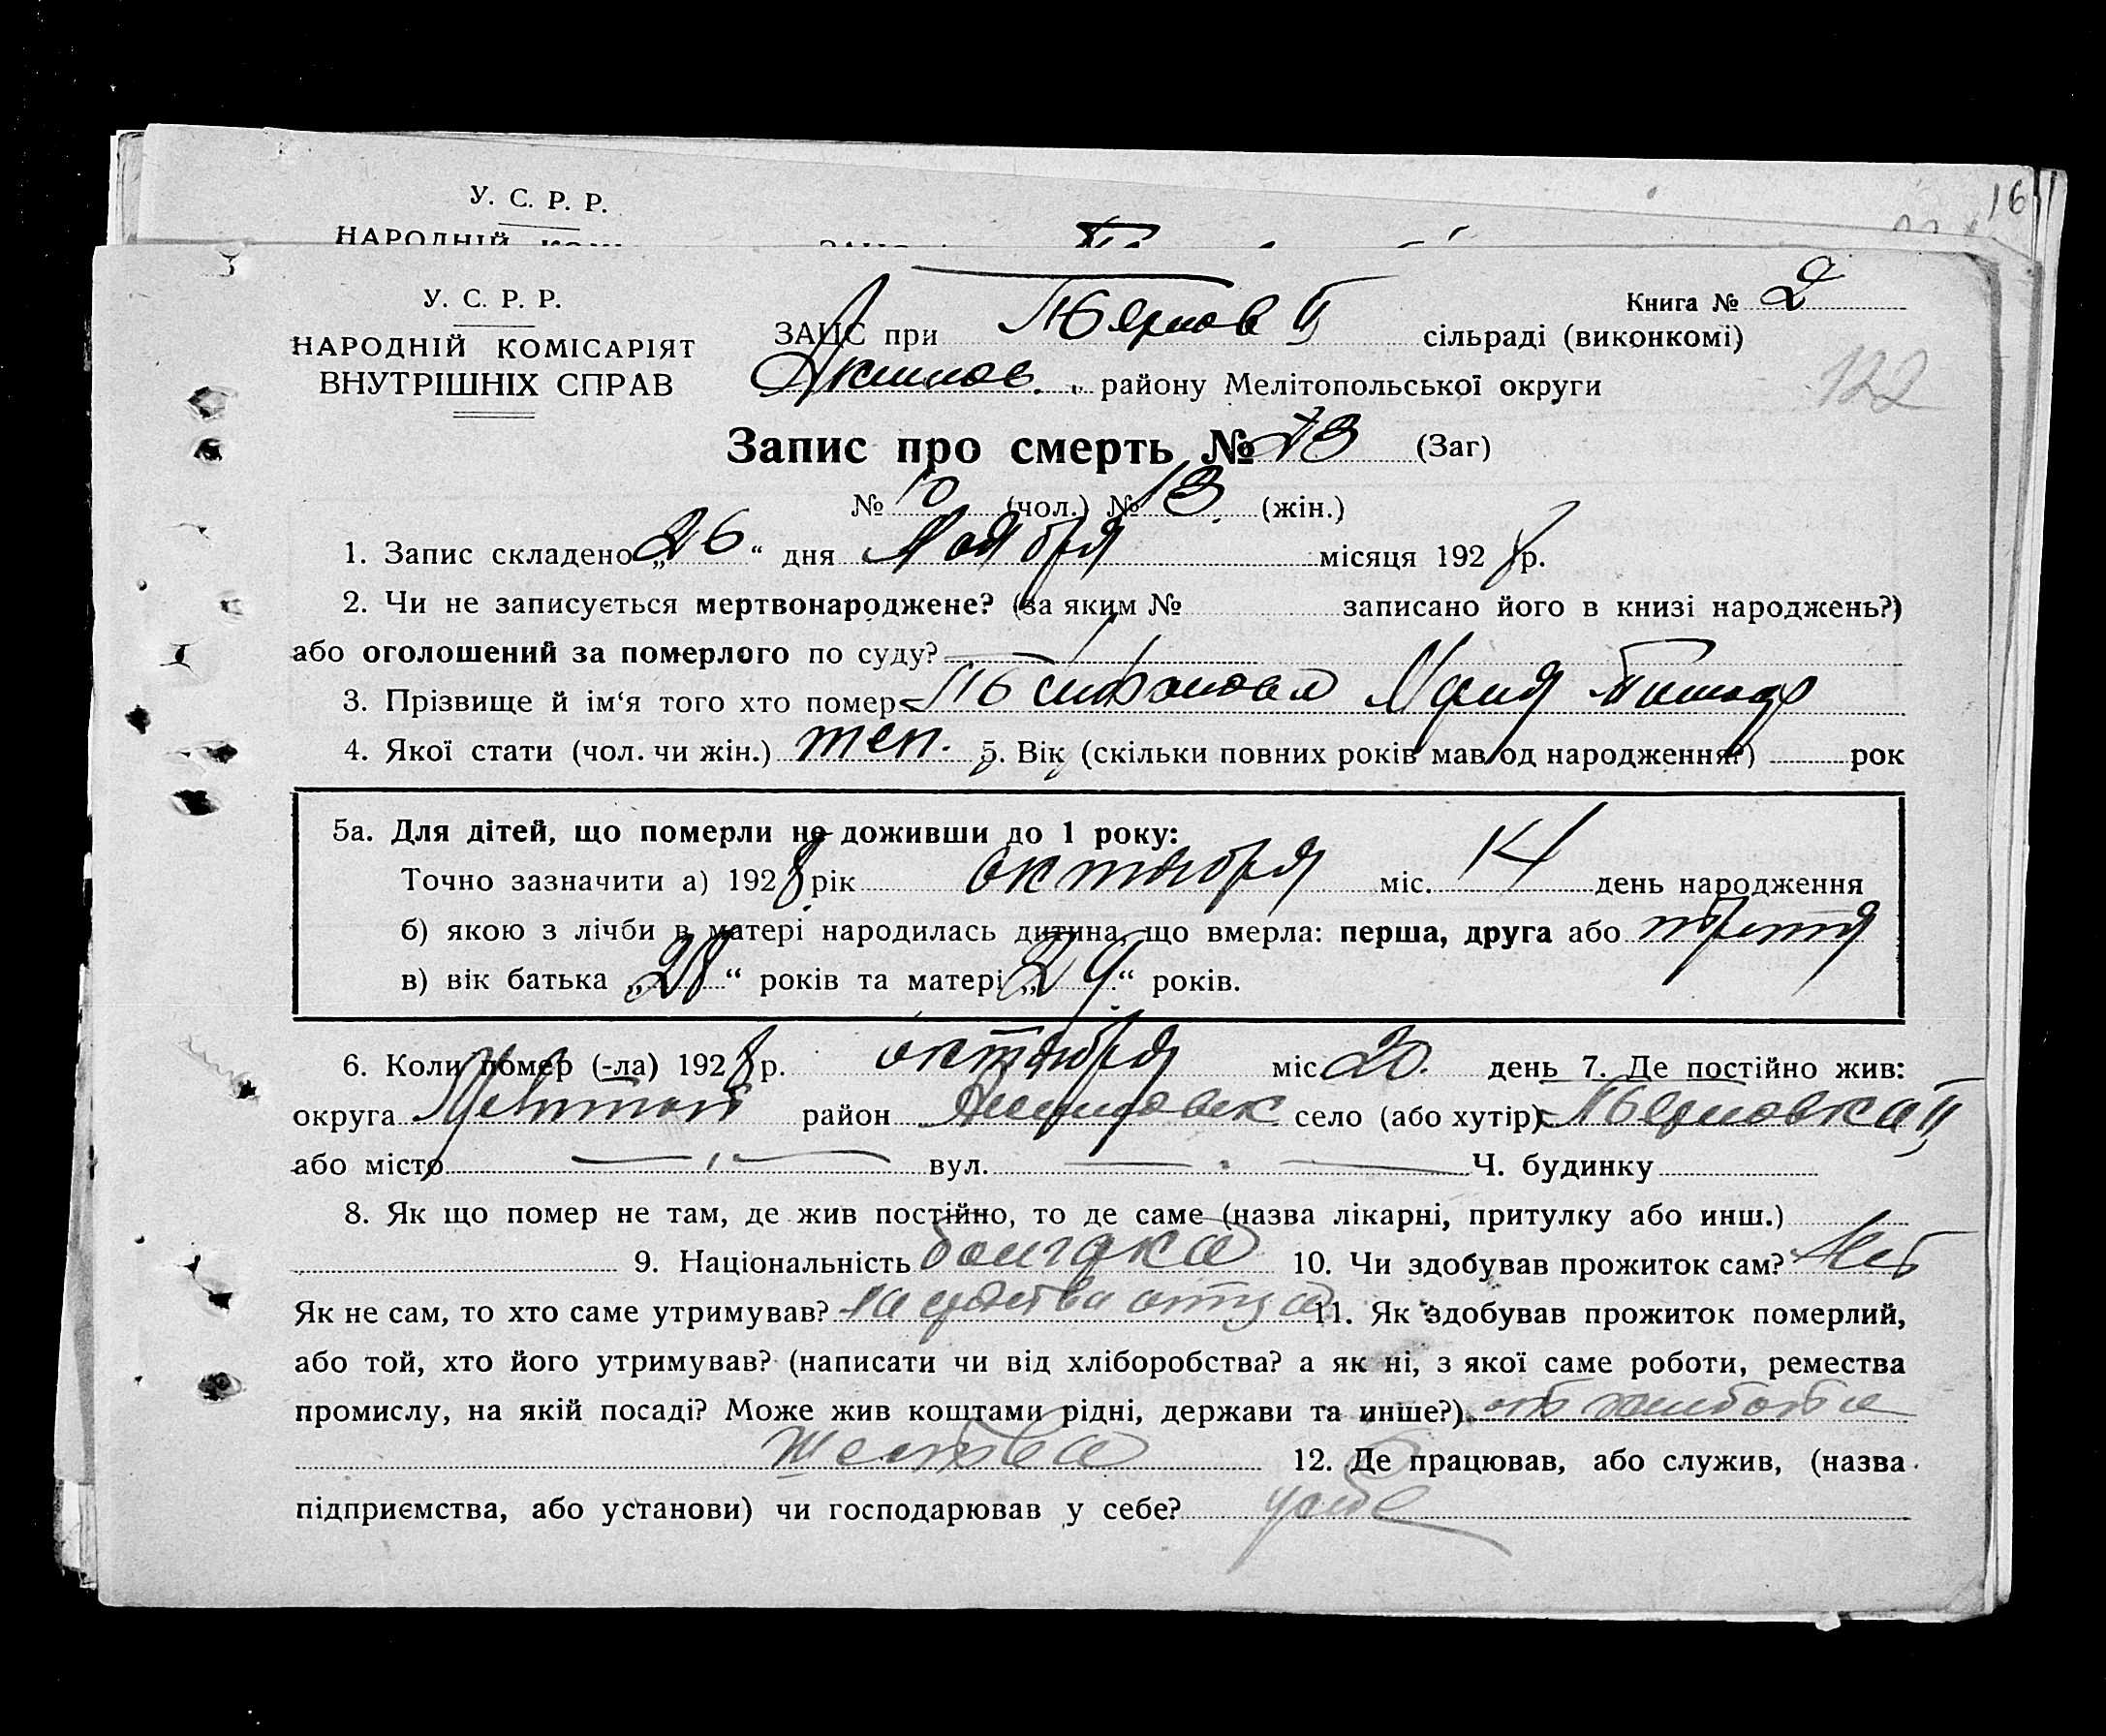 16
У. С. Р. Р.
НАРОДНІЙ
У. С. Р. Р.
НАРОДНІЙ КОМІСАРІЯТ
ВНУТРІШНІХ СПРАВ
Книга № 2
ЗАЦС при сільраді (виконкомі)
Акимов. району Мелітопольської округи
122
Запис про смерть № 73 (Заг)
№ 10 (чол.) № 13. (жін.)
1. Запис складено „26“ дня Ноября місяця 1928 р.
2. Чи не записується мертвонароджене? (за яким № записано його в книзі народжень?)
або оголошений за померлого по суду?
3. Прізвище й ім‘я того хто помер Мария
4. Якої стати (чол. чи жін.) 5. Вік (скільки повних років мав од народження?) рок
5а. Для дітей, що померли не доживши до 1 року:
Точно зазначити а) 1928 рік октября міс. 14 день народження
б) якою з лічби в матері народилась дитина, що вмерла: перша, друга або третя
в) вік батька „28“ років та матері „29“ років.
6. Коли помер (-ла) 1928 р. октября міс 20. день 7. Де постійно жив:
округа район село (або хутір)
або місто вул. Ч. будинку
8. Як що помер не там, де жив постійно, то де саме (назва лікарні, притулку або инш.)
9. Національність болгарка 10. Чи здобував прожиток сам? Нет
Як не сам, то хто саме утримував? на средства отца 11. Як здобував прожиток померлий,
або той, хто його утримував? (написати чи від хліборобства? а як ні, з якої саме роботи, ремества
промислу, на якій посаді? Може жив коштами рідні, держави та инше?)
12. Де працював, або служив, (назва
підприємства, або установи) чи господарював у себе?